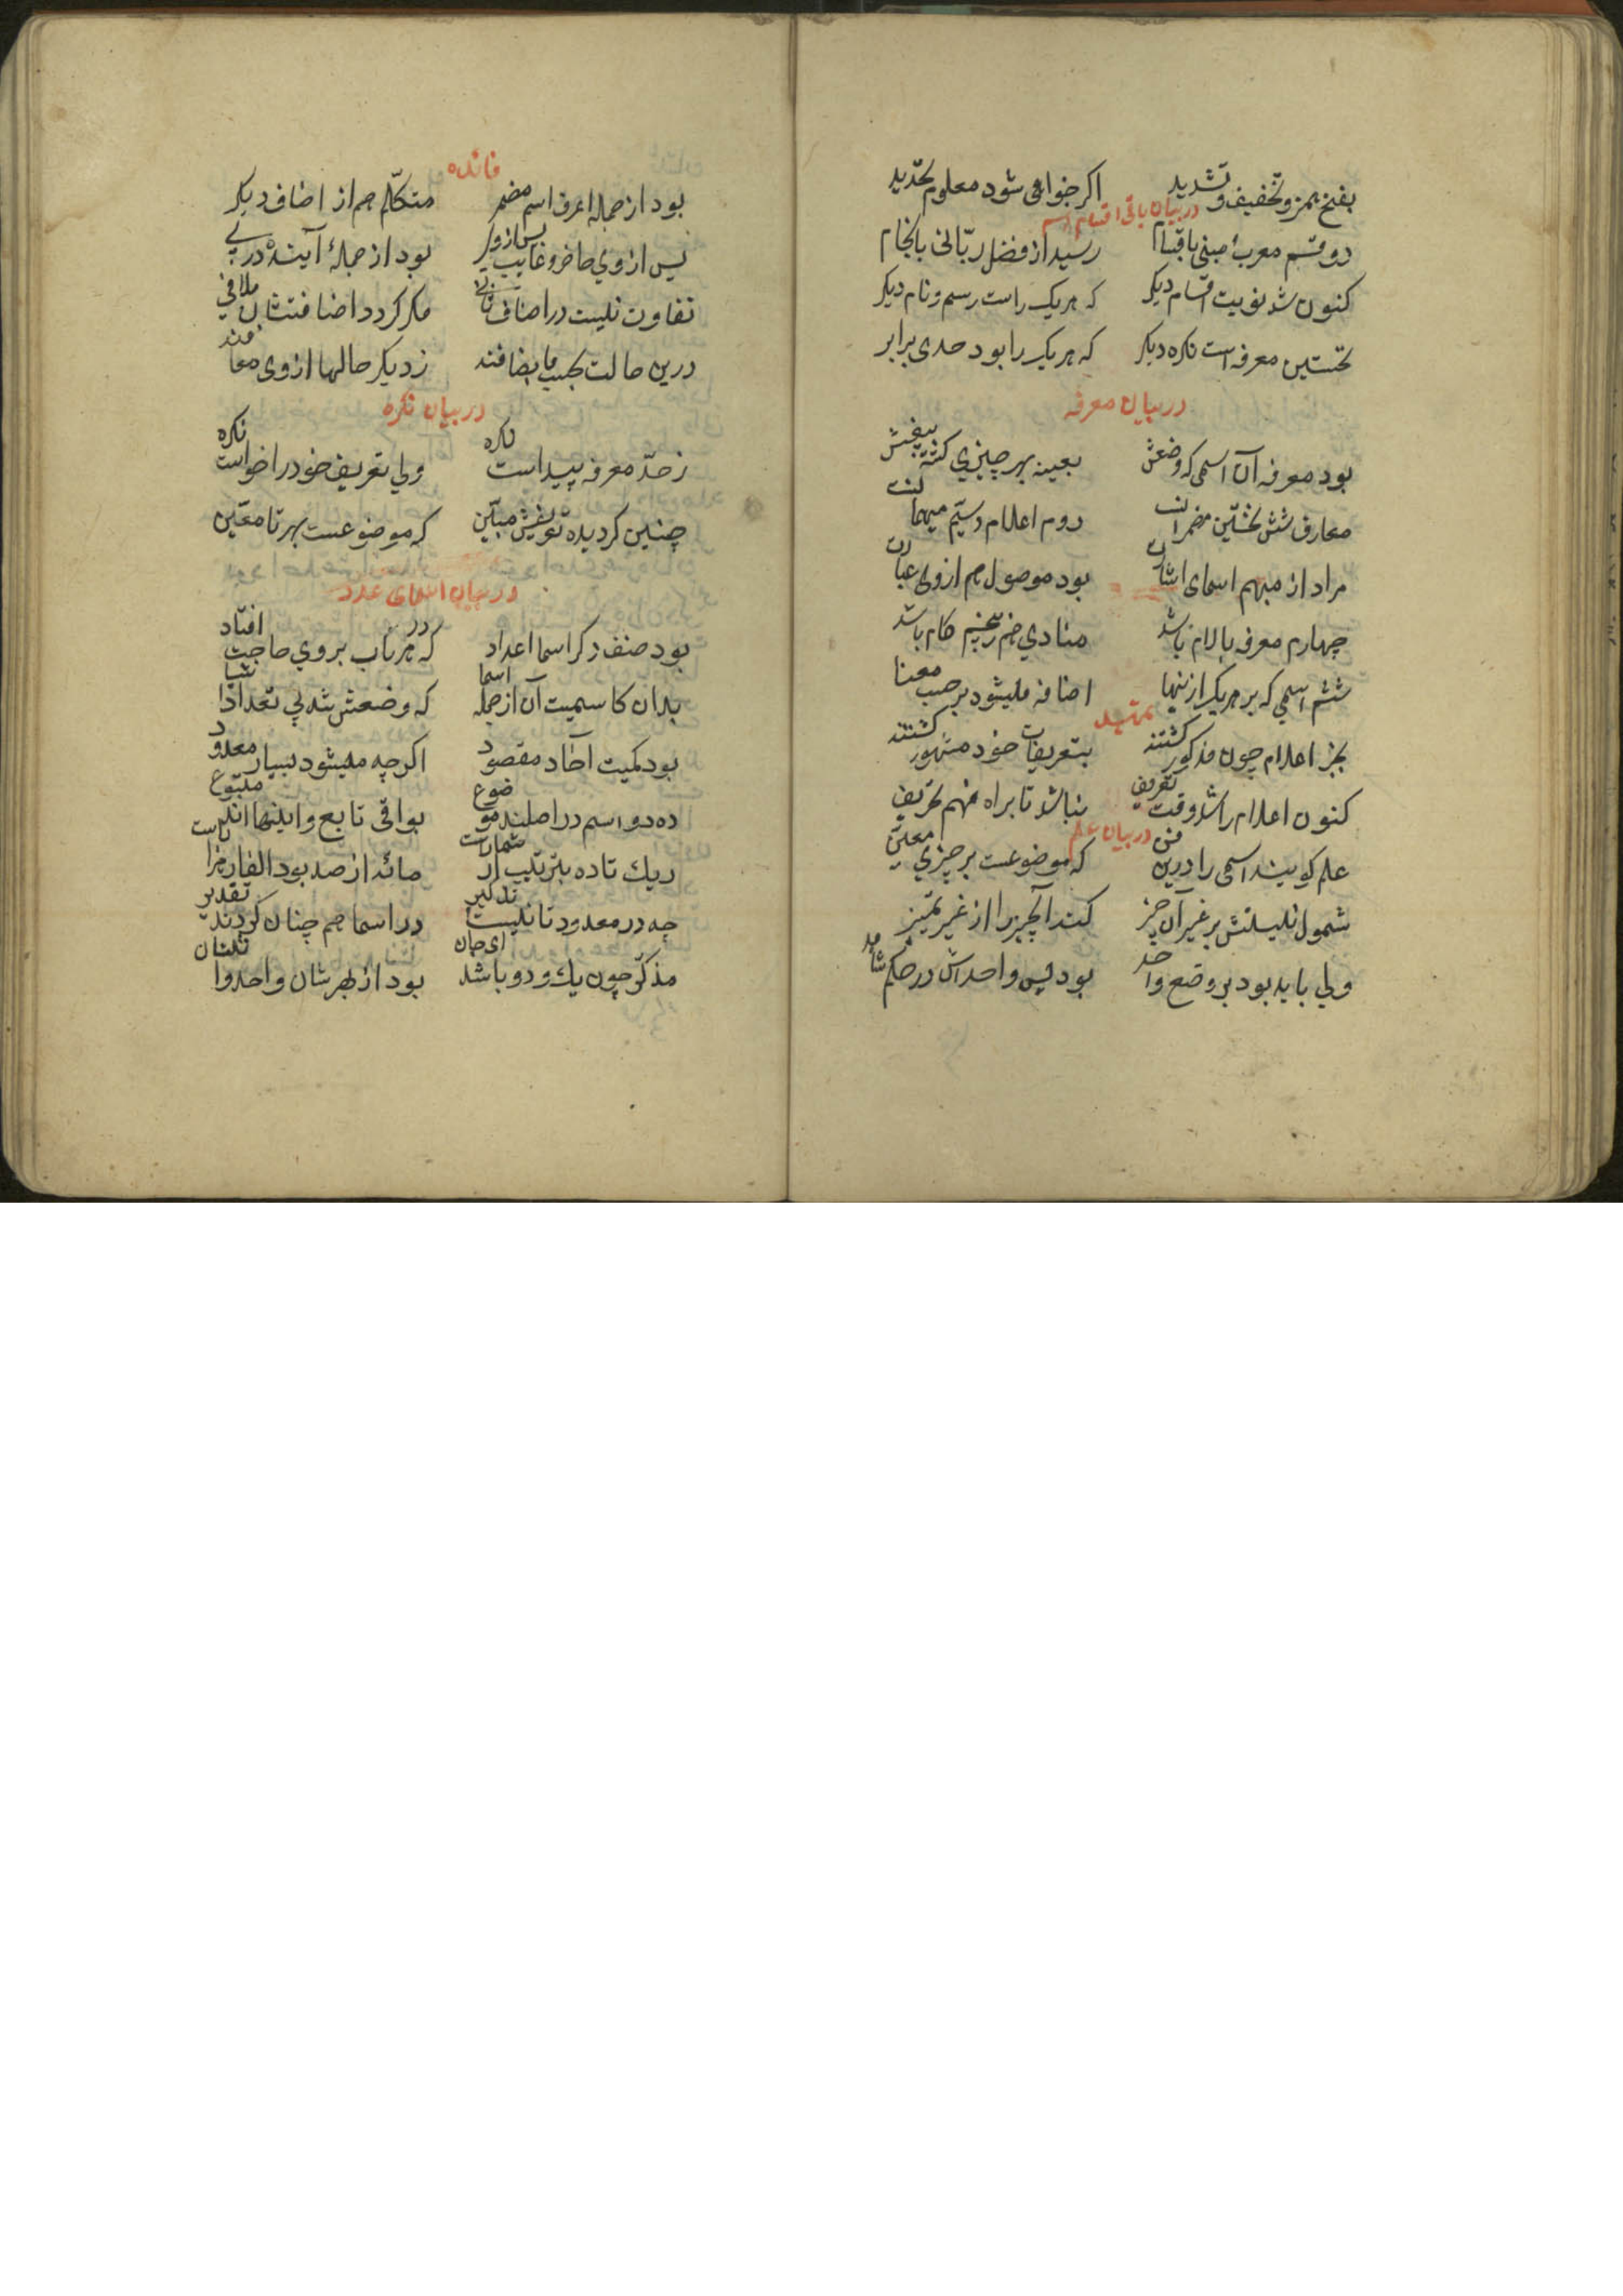 بفتح همز و تخفیف و تشدید اکر خواهی شود معلوم تحدید
در بیان باقی اقسام اسم
دو قسم معرب مبنی باقسام رسید از فضل ربّانی بانجام
کنون شد نوبت اقسام دیکر که هر یک راست رسم و نام دیکر
نخستین معرفه است نکره دیکر که هر یک را بود حدی برابر
در بیان معرفه
بود معرفه آن اسمی که وضعش بعینه بهر چیزی کشته
معارف شش نخستین مضمرانت دوم اعلام و سیّم مبهمانت
مراد از مبهم اسمای اشارت بود موصول هم از وی عبارت
چهارم معرفه بالام باشد منادی هم پنجم کام باشد
ششم اسمی که بر هر یک ازینها اضافه میشود بر حسب معنا
تمهید
بجز اعلام چون مذکور کشتند بتعریفات خود مشهور کشتند
کنون اعلام را شد وقت تعریف نباشد تا براه فهم تحریف
در بیان علم
علم کویند اسمی را درین فن که موضوعست بر چیزی معیّن
شمول نیستش بر غیر آن چیز کند آنچیز را از غیر تمییز
ولی باید بود بر وضع واحد بود پس واحداش در حکم شاهد
فائده
بود از جمله اعرف اسم مضمر متکلّم هم از اضاف دیکر
پس از وی حاضر و غایب پس از وی بود از جملهٔ آینده در پی
تفاوت نیست در اصناف باقی مکر کردد اضافتشان ملاقی
درین حالت بحسب ما یضافند ز دیکر حالها از وی معافند
در بیان نکره
ز حدّ معرفه پیداست نکره ولی تعریف خود را خواست نکره
چنین کردیده تعریفش مبیّن که موضوعست بهر نا معیّن
در بیان اسمای عدد
بود صنف دکر اسما اعداد که در هر باب بر وی حاجت افتاد
بدان کاسمیت آن از جمله اسما که وضعش شد پی تعداد اشیا
بود کمیت آحاد مقصود اکرچه میشود بسیار معدود
ده دو اسم در اصلند موضوع بواقی تابع و اینها اند متبوع
ز یک تا ده بترتیب شمارست مائه از صد بود الف از هزارست
چه در معدود تا نیست تذکیر در اسما هم چنان کردند تقدیر
مذکّر چون یک و دو باشد ای جان بود از بهرشان واحد و اثنان